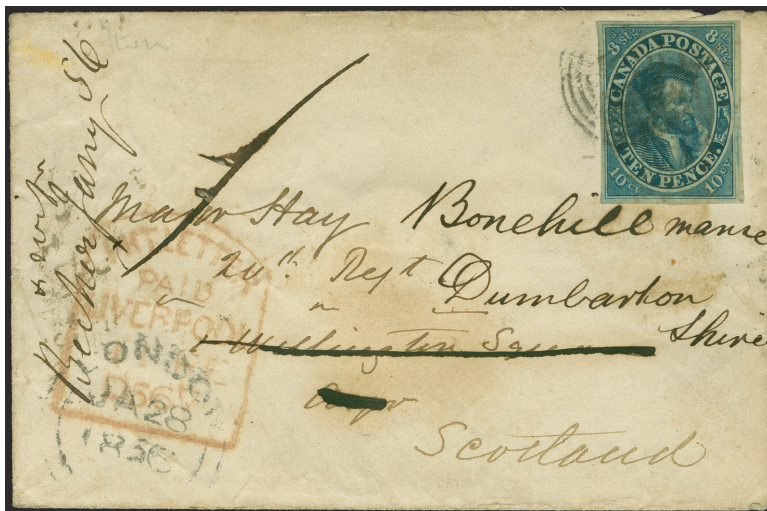 8d stg. 8d stg.
CANADA POSTAGE
TEN PENCE.
10 cy 10 cy
Major Hay Bonehill manse
20th Regt Dumbarton
Shire
Wellington Square
Ayr
Scotland
PKT LETTER
PAID
LIVERPOOL
LONDON
JA 28
1856